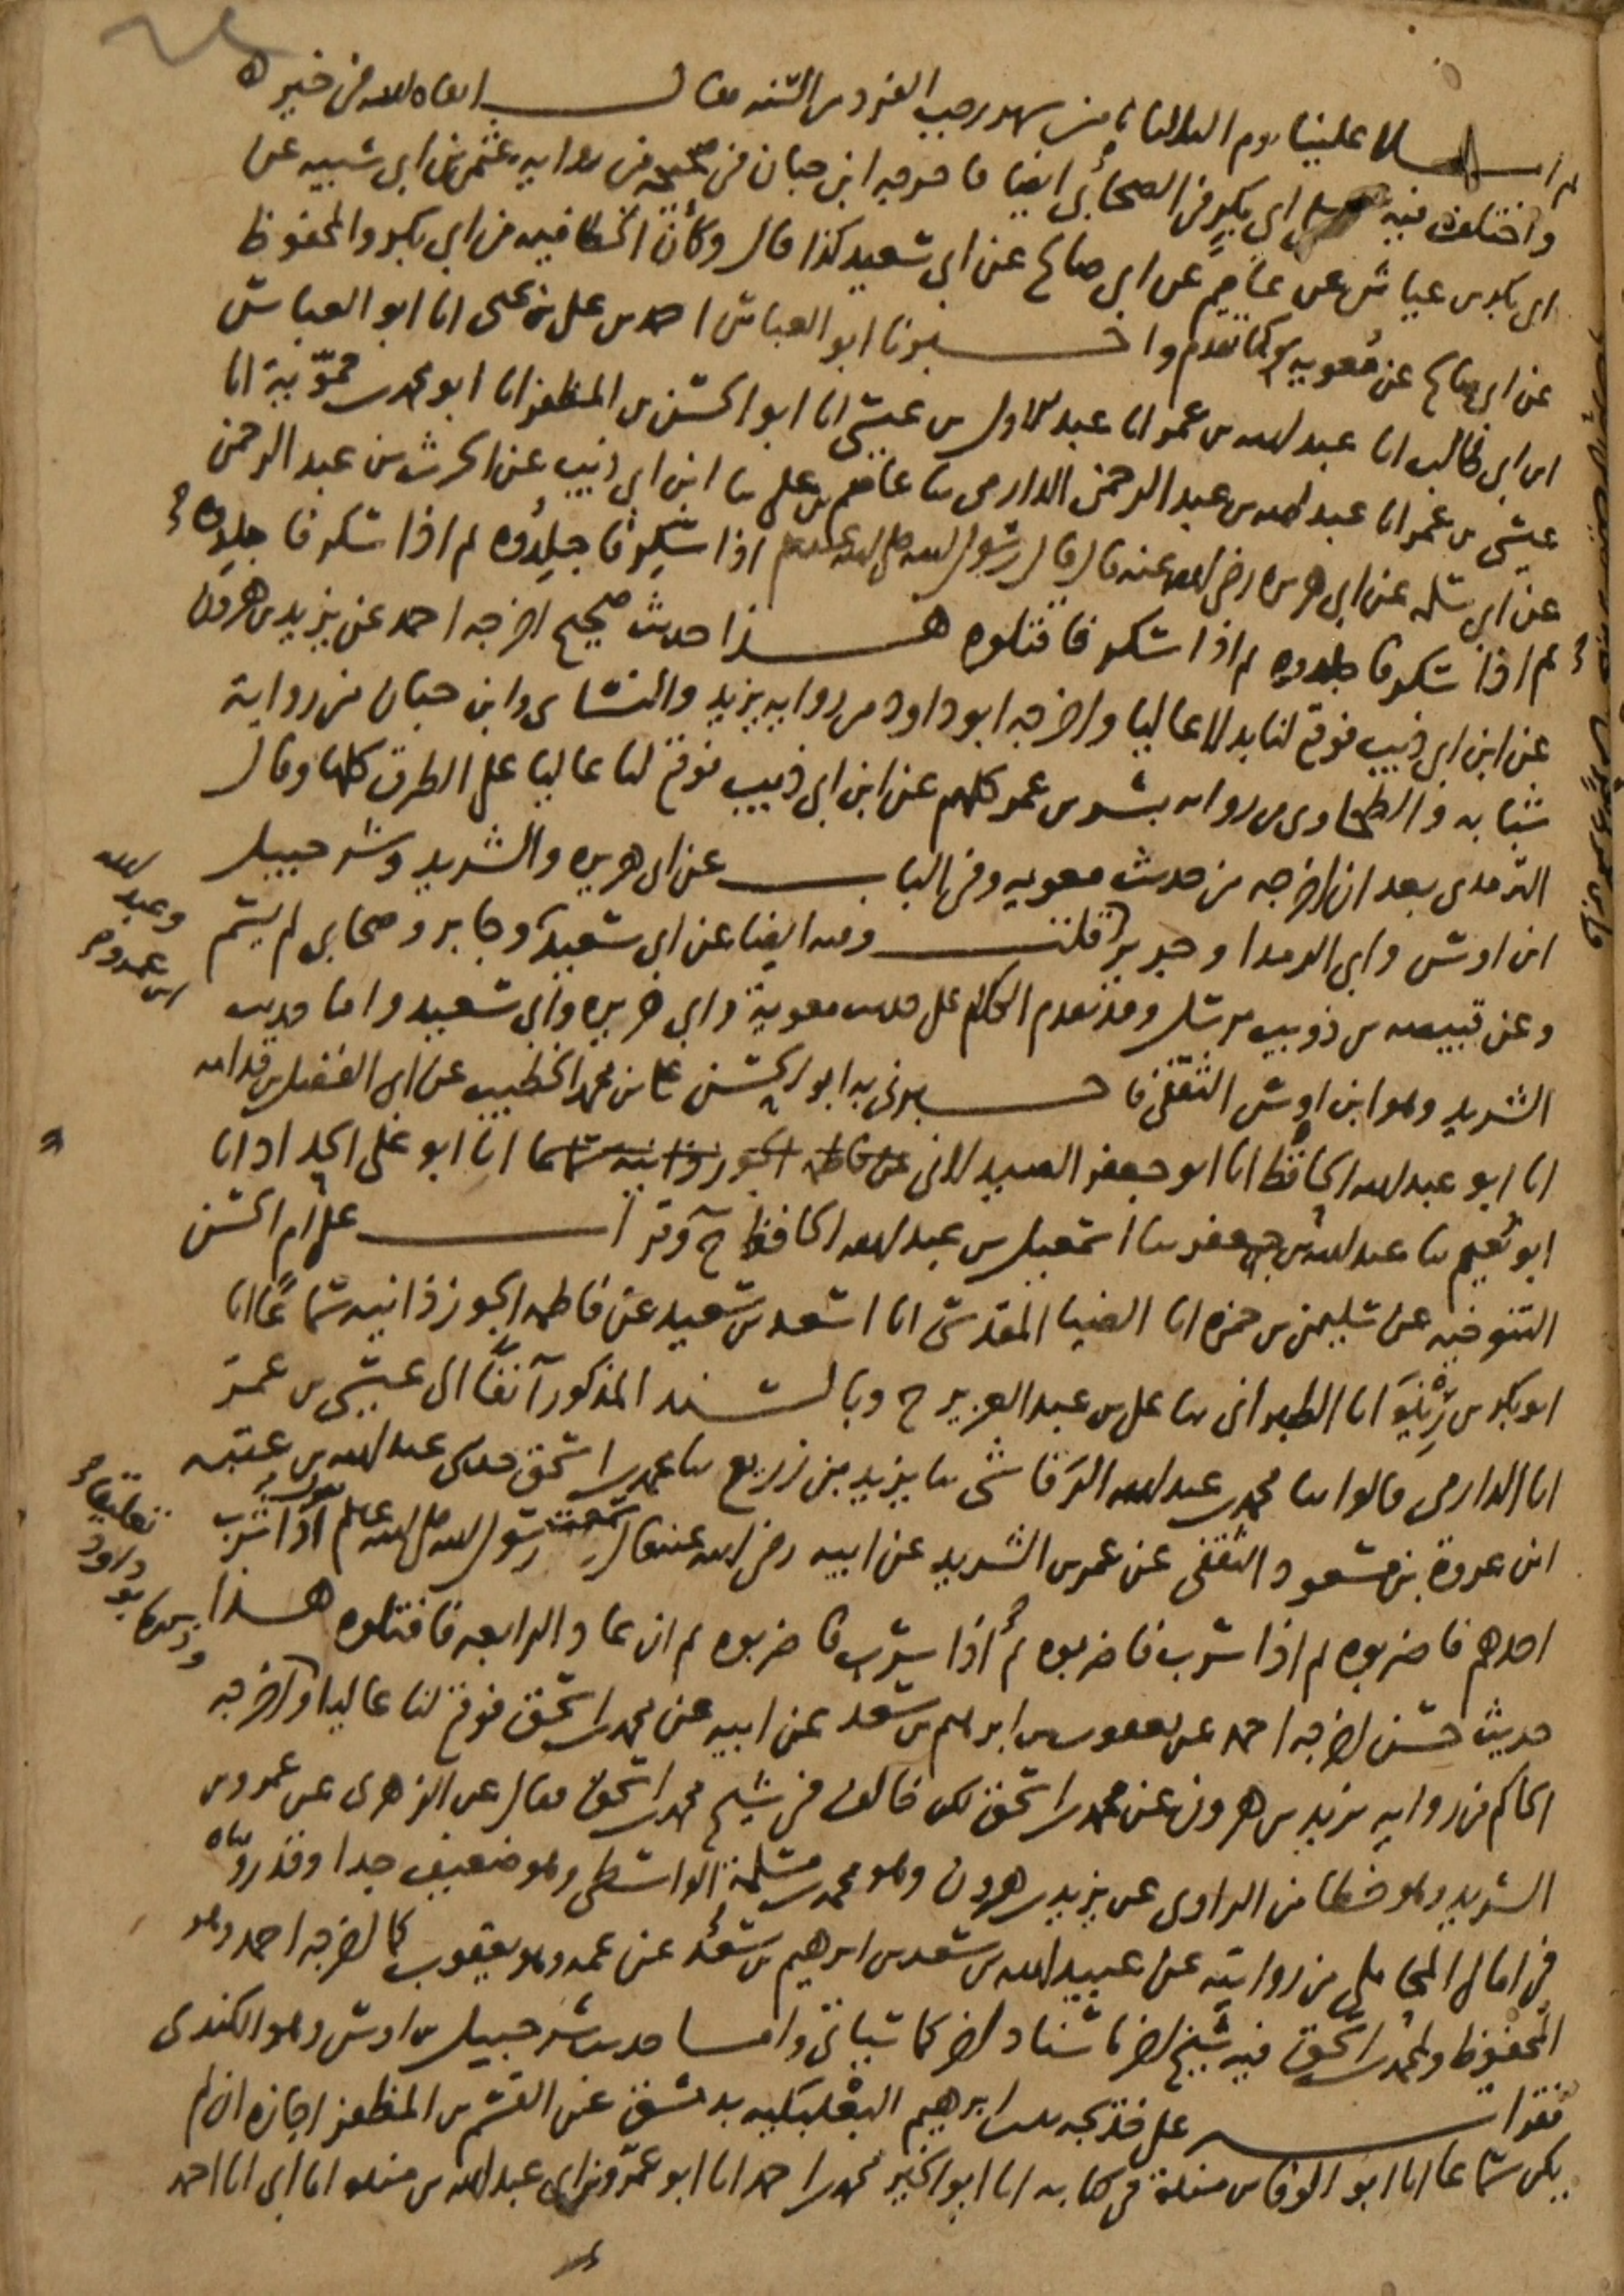 ثم املى علينا يوم الثلاثاء ثامن شهر رجب الفرد من السنة فقال ابقاه الله في خير
واختلف فيه على ابي بكر في الصحابي ايضا فاخرجه ابن حبان في صحيحه من رواية عثمن بن ابي شيبة عن
ابي بكر بن عياش عن عاصم عن ابي صالح عن ابي سعيد كذا قال وكأن الخطا فيه من ابي بكر والمحفوظ
عن ابي صالح عن معوية كما تقدم واخبرنا ابو العباس احمد بن علي بن يحيى انا ابو العباس
ابن ابي طالب انا عبد الله بن عمر انا عبد الاول بن عيسى انا ابو الحسن بن المظفر انا ابو محمد بن حمّوية انا
عيسى بن عمر انا عبد الله بن عبد الرحمن الدارمي ثنا عاصم بن علي ثنا ابن ابي ذئب عن الحرث بن عبد الرحمن
عن ابي سلمة عن ابي هريرة رضي الله عنه قال قال رسول الله صلى الله عليه وسلم اذا سكر فاجلدوه ثم اذا سكر فاجلدوه
ثم اذا سكر فاجلدوه ثم اذا سكر فاقتلوه هذا حديث صحيح اخرجه احمد عن يزيد بن هرون
عن ابن ابي ذئب فوقع لنا بدلا عاليا واخرجه ابو داود من رواية يزيد والنسائي وابن حبان من رواية
شبابة والطحاوي من رواية بشر بن عمر كلهم عن ابن ابي ذئب فوقع لنا عاليا على الطرق كلها وقال
الترمذي بعد ان اخرجه من حديث معوية وفي الباب عن ابي هريرة والشريد وشرحبيل
ابن اوس وابي الرمدا وجرير قلت وفيه ايضا عن ابي سعيد وجابر وصحابي لم يسم
وعبد الله
بن عمرو
وعن قبيصة بن ذويب مرسل وقد تقدم الكلام على حديث معوية وابي هريرة وابي سعيد واما حديث
الشريد وهو ابن اوس الثقفي فاخبرني به ابو الحسن علي بن محمد الخطيب عن ابي الفضل بن قدامة
انا ابو عبد الله الحافظ انا ابو جعفر الصيدلاني عن فاطمة الجوزذانية سماعا انا ابو علي الحداد انا
ابو نعيم ثنا عبد الله بن جعفر ثنا اسمعيل بن عبد الله الحافظ ح وقرأت على ام الحسن
التنوخية عن سليمن بن حمزة انا الضيا المقدسي انا اسعد بن سعيد عن فاطمة الجوزذانية سماعًا انا
ابو بكر بن رِيْذَة انا الطبراني ثنا علي بن عبد العزيز ح وبالسند المذكور آنفًا الى عيسى بن عمر
انا الدارمي قالوا ثنا محمد بن عبد الله الرَقاشي ثنا يزيد بن زريع ثنا محمد بن اسحق حدثني عبد الله بن عتبة
ابن عروة بن مسعود الثقفي عن عمرو بن الشريد عن ابيه رضي الله عنه قال سمعت رسول الله صلى الله عليه وسلم يقول اذا شرب
احدهم فاضربوه ثم اذا شرب فاضربوه ثم اذا شرب فاضربوه ثم ان عاد الرابعة فاقتلوه هذا
وذكره ابو داود تعليقا
حديث حسن اخرجه احمد عن يعقوب بن ابرهيم بن سعد عن ابيه عن محمد بن اسحق فوقع لنا عاليا واخرجه
الحاكم من رواية يزيد بن هرون عن محمد بن اسحق لكن خالف في شيخ محمد بن اسحق فقال عن الزهري عن عمرو بن
الشريد وهو خطا من الراوي عن يزيد بن هرون وهو محمد بن مسلمة الواسطي وهو ضعيف جدا وقد رويناه
في امالي المحاملي من روايته عن عبيد الله بن سعد بن ابرهيم بن سعد عن عمه وهو يعقوب كما اخرجه احمد وهو
المحفوظ ولمحمد بن اسحق فيه شيخ اخر باسناد اخر كما سياتي واما حديث شرحبيل بن اوس وهو الكندي
فقرأت على خديجة بنت ابرهيم البعلبكية بدمشق عن القسم بن المظفر اجازة ان لم
يكن سماعا انا ابو الوفا بن مندة في كتابه انا ابو الخير محمد بن احمد انا ابو عمرو بن ابي عبد الله بن مندة انا ابي انا احمد